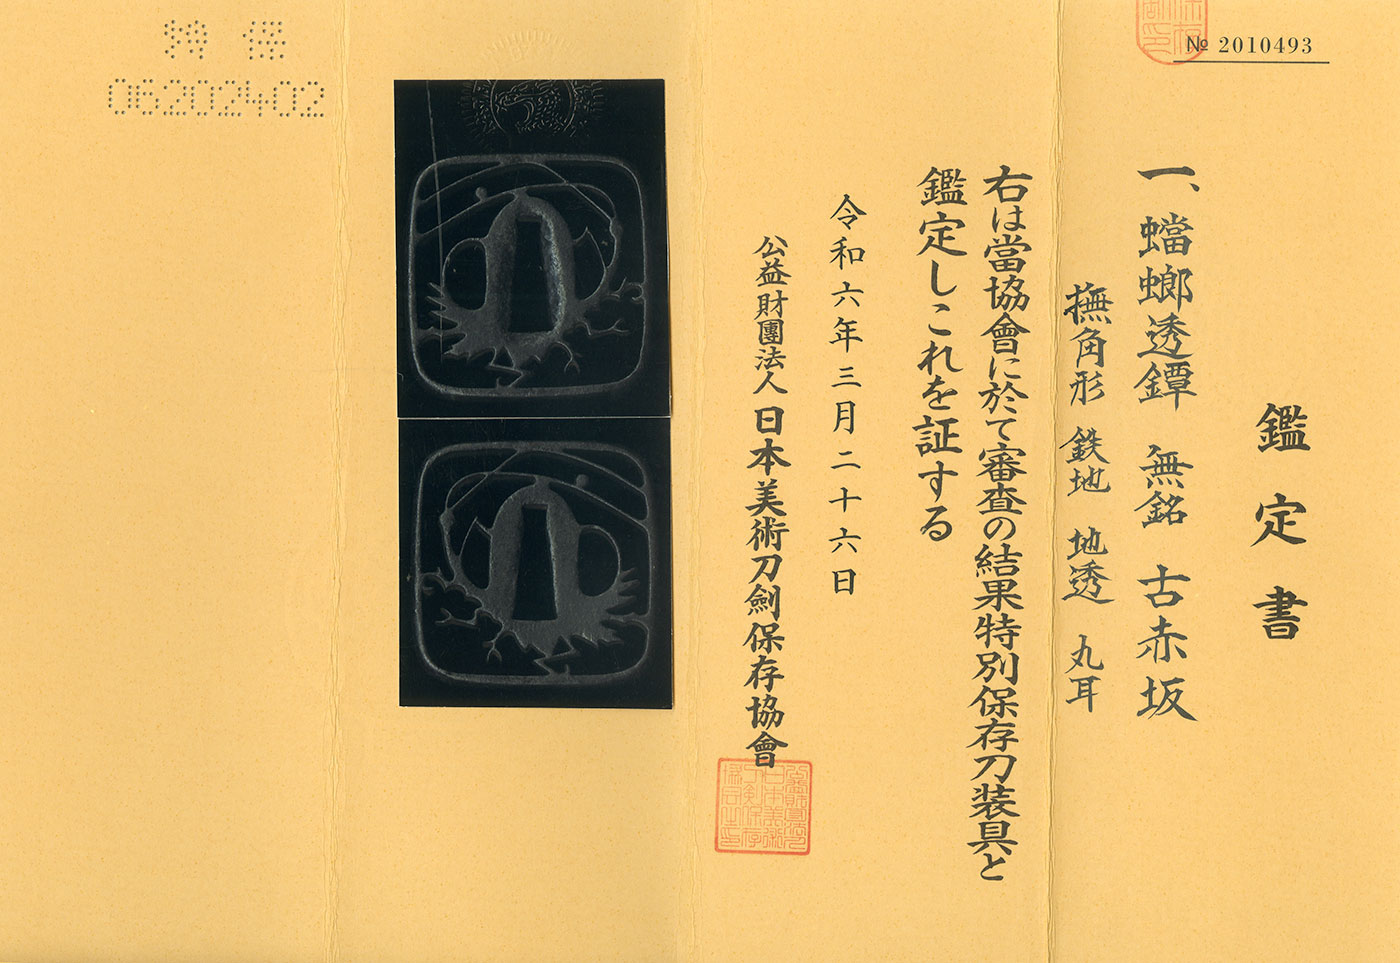 № 2010493
鑑定書
一、蟷螂透鐔 無銘 古赤坂
撫角形 鉄地 地透 丸耳
右は當協會に於て審査の結果特別保存刀装具と
鑑定しこれを証する
令和六年三月二十六日
公益財團法人 日本美術刀劍保存協會
特保
06202402